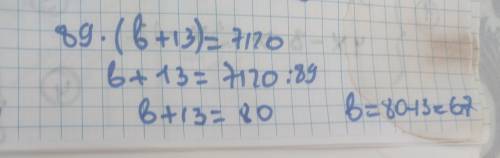 89·(в+13)=7120
в+13=7120:89
в+13=80
в=80-13=67